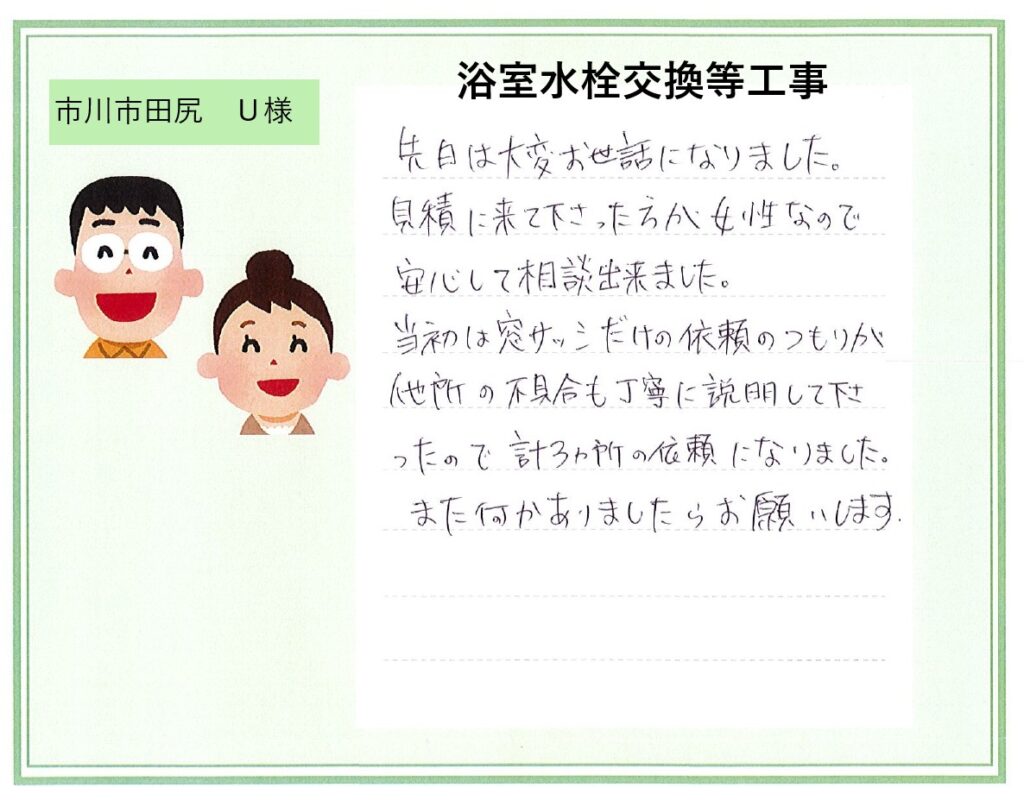 浴室水栓交換等工事
市川市田尻　U様
先日は大変お世話になりました。
見積に来て下さった方が女性なので
安心して相談出来ました。
当初は窓サッシだけの依頼のつもりが
他所の不具合も丁寧に説明して下さ
ったので計3ヵ所の依頼になりました。
また何かありましたらお願いします.